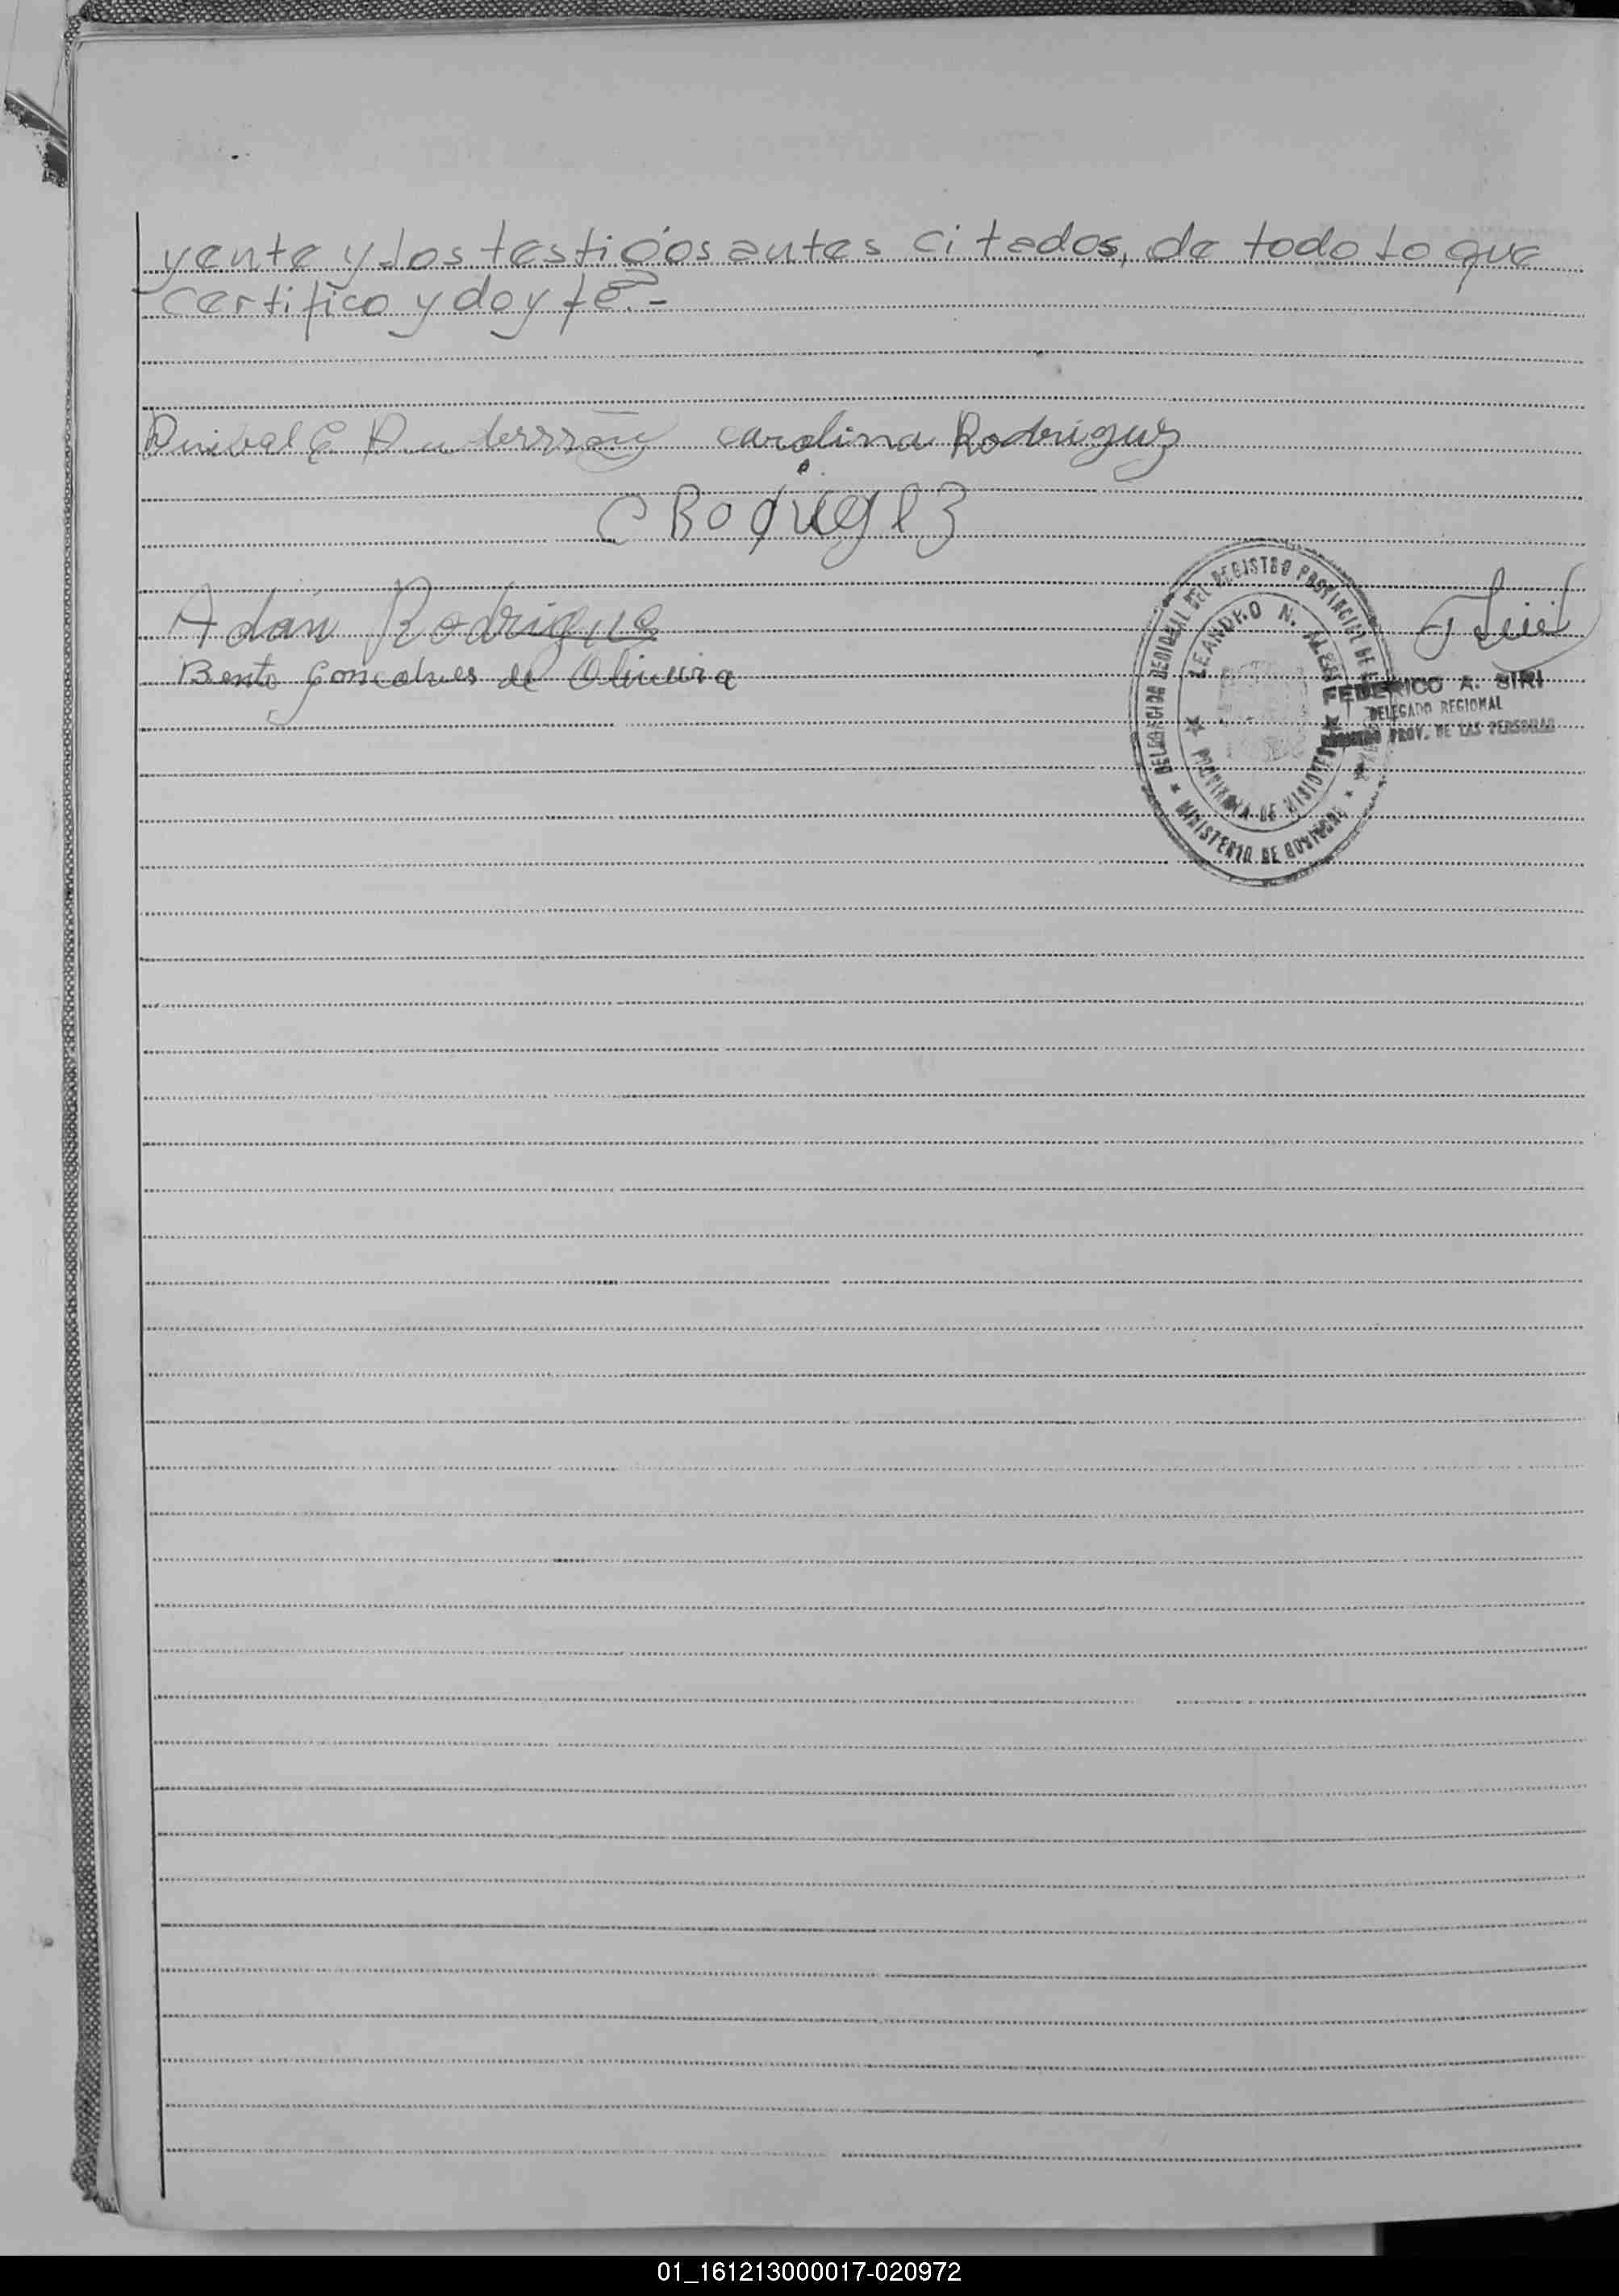 yente y los testigos antes citados, de todo lo que
certifico y doy fé.-
carolina Rodriguez
C Rodrigez
Adán Rodrigue
Bento Goncalves de Oliveira
DELEGACION REGIONAL DEL REGISTRO PROVINCIAL DE
LEANDRO N. ALEM
PROVINCIA DE MISIONES
MINISTERIO DE GOBIERNO
FEDERICO A. SIRI
DELEGADO REGIONAL
REGISTRO PROV. DE LAS PERSONAS
01_161213000017-020972